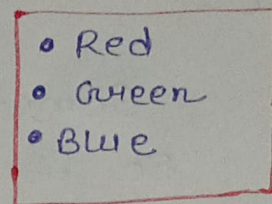 • Red
• Green
• Blue